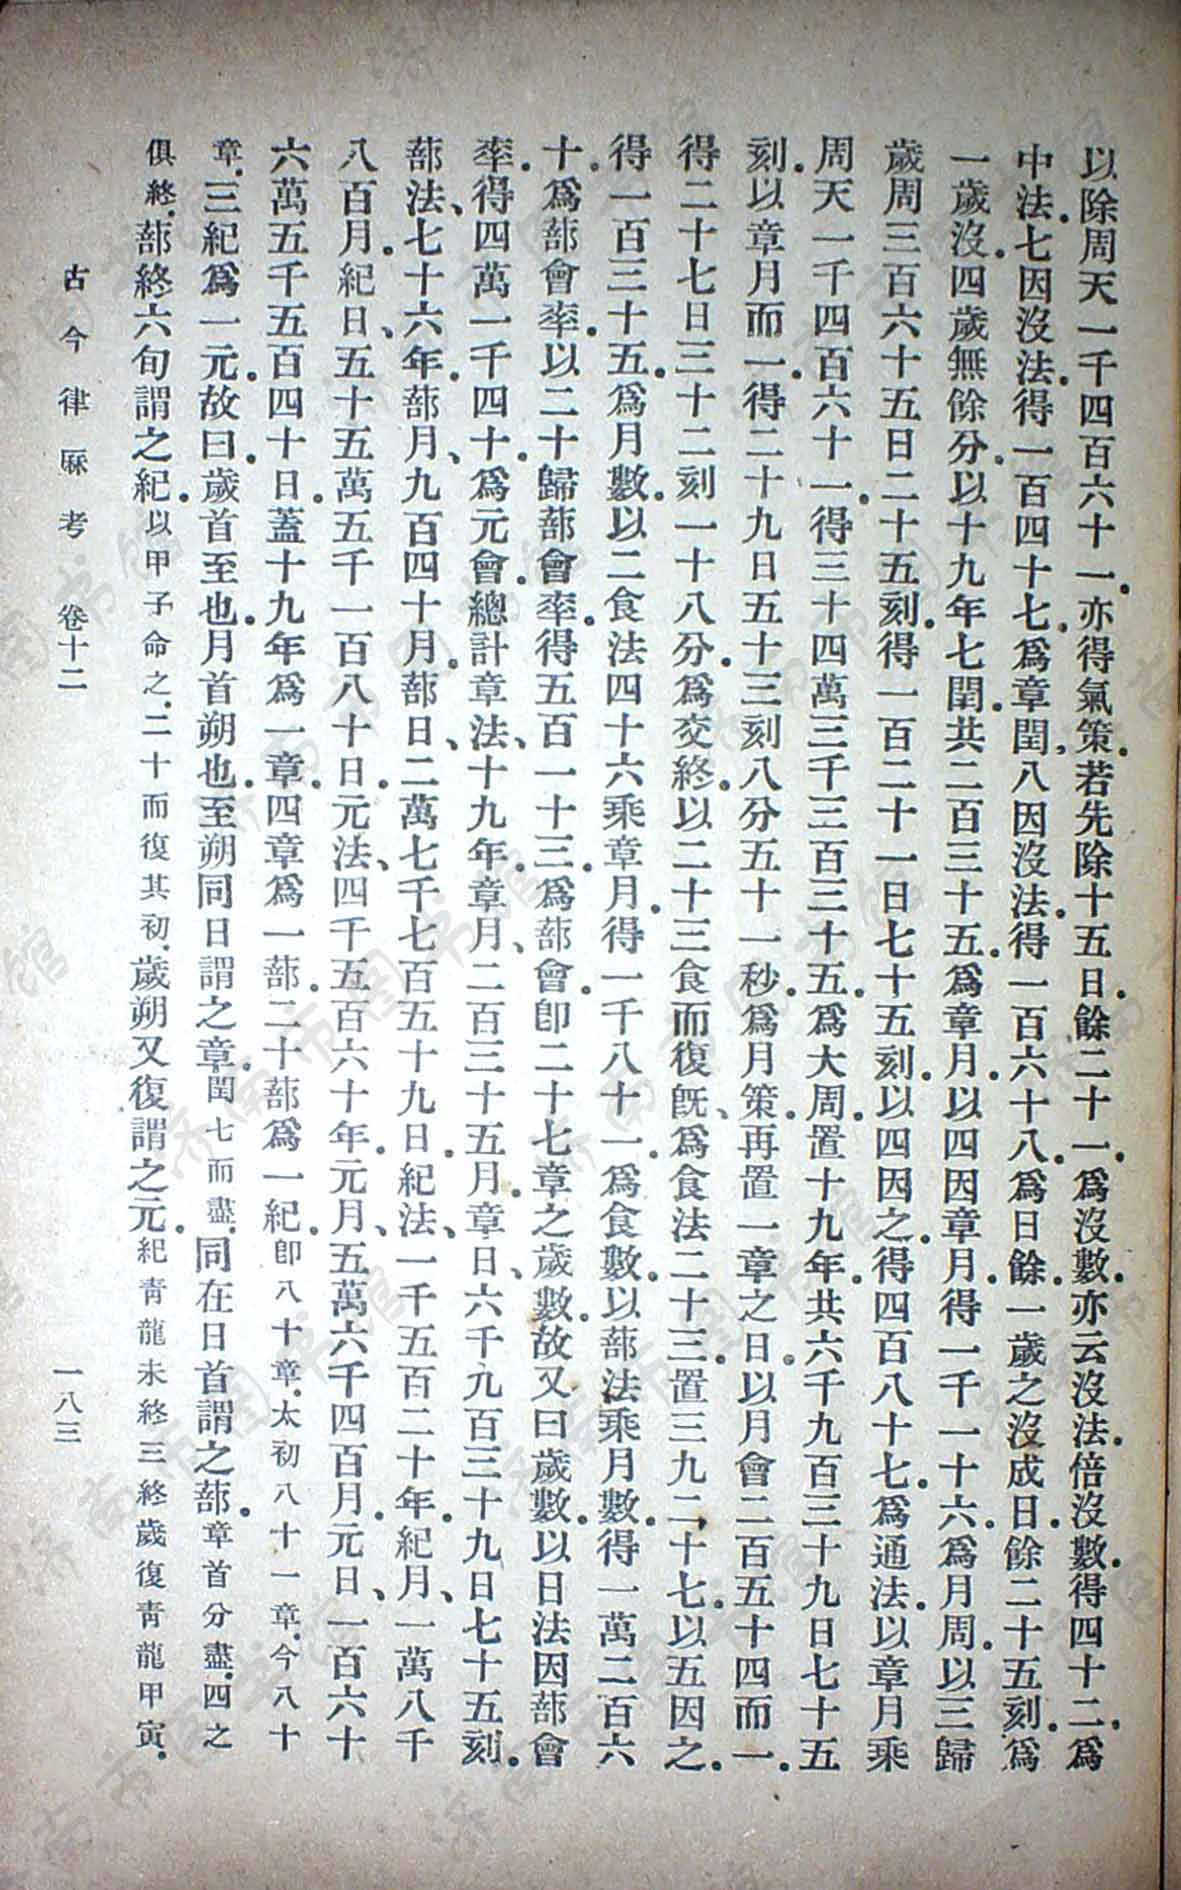 以除周天一千四百六十一。亦得氣策。若先除十五日。餘二十一。爲沒數。亦云沒法。倍沒數。得四十二。爲
中法。七因沒法。得一百四十七。爲章閏、八因沒法。得一百六十八。爲日餘。一歲之沒成日。餘二十五刻。爲
一歲沒。四歲無餘分。以十九年七閏。共二百三十五。爲章月。以四因章月。得一千一十六。爲月周。以三歸
歲周三百六十五日二十五刻。得一百二十一日七十五刻。以四因之。得四百八十七。爲通法。以章月乘
周天一千四百六十一。得三十四萬三千三百三十五。爲大周。置十九年。共六千九百三十九日七十五
刻。以章月而一。得二十九日五十三刻八分五十一秒。爲月策。再置一章之日。以月會二百五十四而一。
得二十七日三十二刻一十八分。爲交終。以二十三食而復既、爲食法二十三。置三九二十七。以五因之。
得一百三十五。爲月數。以二食法四十六乘章月。得一千八十一。爲食數。以蔀法乘月數。得一萬二百六
十。爲蔀會率。以二十歸蔀會率。得五百一十三。爲蔀會。卽二十七章之歲數。故又曰歲數。以日法因蔀會
率。得四萬一千四十。爲元會。總計章法、十九年。章月、二百三十五月。章日、六千九百三十九日七十五刻。
蔀法、七十六年。蔀月、九百四十月。蔀日、二萬七千七百五十九日。紀法、一千五百二十年。紀月、一萬八千
八百月。紀日、五十五萬五千一百八十日。元法、四千五百六十年。元月、五萬六千四百月。元日、一百六十
六萬五千五百四十日。蓋十九年爲一章。四章爲一蔀。二十蔀爲一紀。卽八十章。太初八十一章。今八十
章。三紀爲一元。故曰。歲首至也。月首朔也。至朔同日謂之章。閏七而盡。同在日首謂之蔀。章首分盡。四之
俱終。蔀終六旬謂之紀。以甲子命之。二十而復其初。歲朔又復謂之元。紀靑龍未終三終歲復靑龍甲寅。
古今律厤考　卷十二　一八三
济南市图书馆